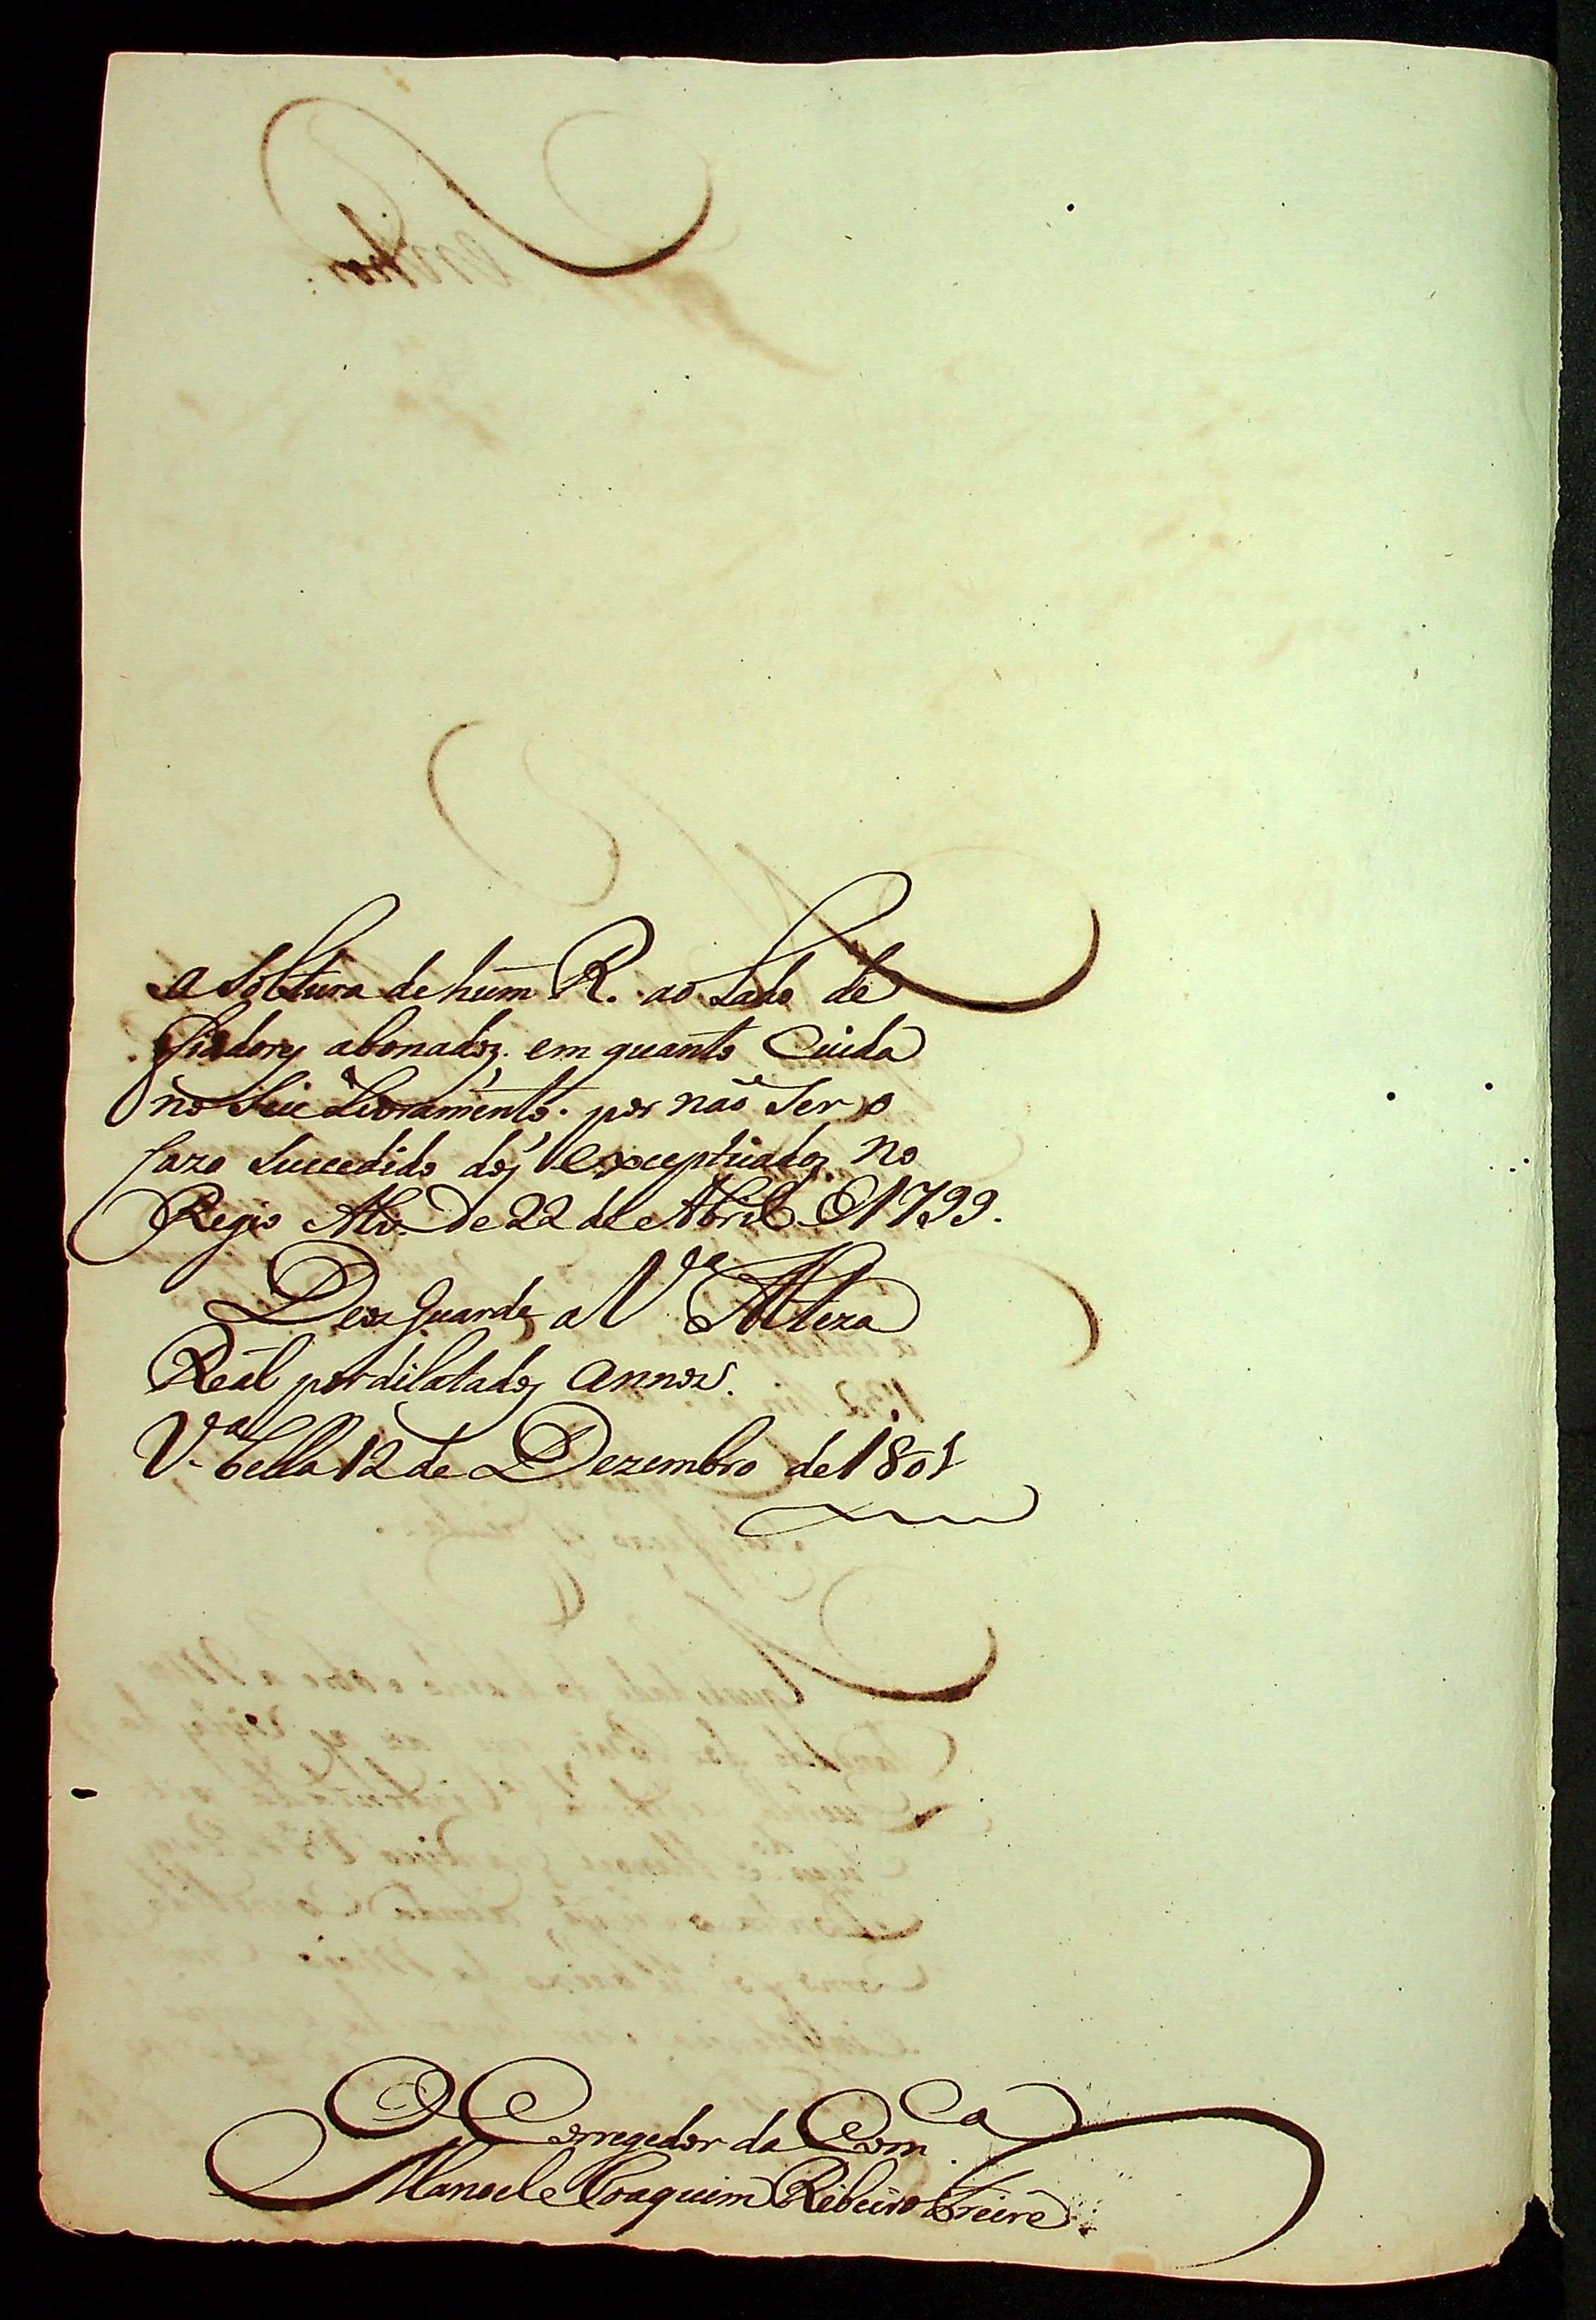 a Soltura de hum R. ao Lado de
Fiadores abonados. em quanto Cuida
no Seu Livramento. por naõ Ser o
cazo Succedido dos exceptuados no
Regio Alv. de 22 de Abril de 1799.
Deos Guarde a V.ª Alteza
Real por dilatados annos.
V.ª bella 12 de Dezembro de 1801
O Corregedor da Com.ca
Manoel Joaquim Ribeiro Freire.